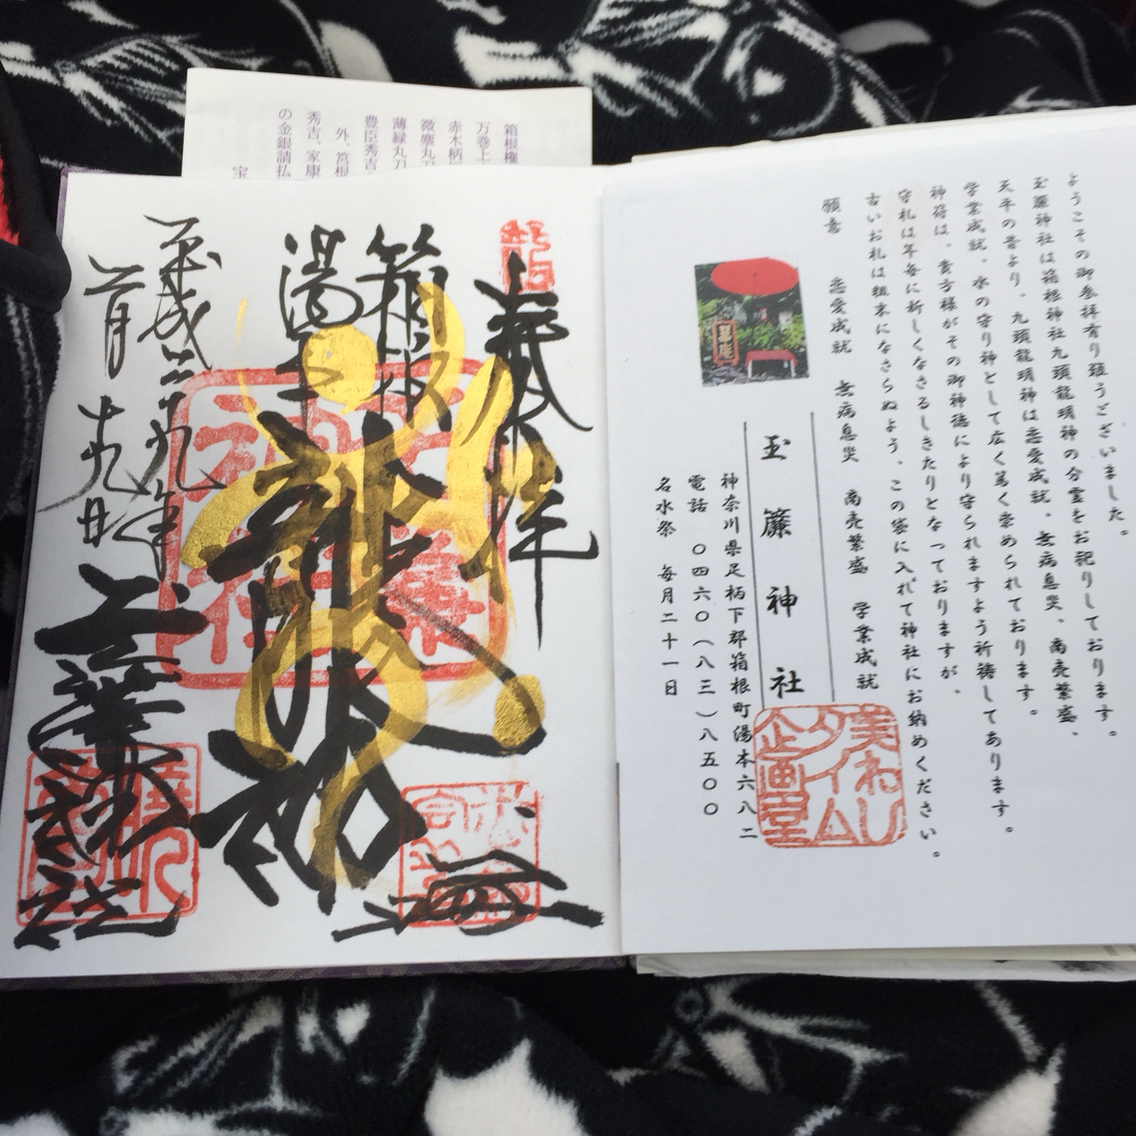 ようこその御参拝有り難うございました。
玉簾神社は箱根神社九頭龍明神の分霊をお祀りしております。
天平の昔より、九頭龍明神は恋愛成就、無病息災、商売繁盛、
学業成就、水の守り神として広く篤く崇められております。
神符は、貴方様がその御神徳により守られますよう祈祷してあります。
守札は年毎に新しくなさるしきたりとなっておりますが、
古いお札は粗末になさらぬよう、この袋に入れて神社にお納めください。
願意 恋愛成就 無病息災 商売繁盛 学業成就
玉簾神社
神奈川県足柄下郡箱根町湯本六八二
電話 〇四六〇(八三)八五〇〇
名水祭 毎月二十一日
美ねし
タイム
企画室
奉拝
箱根
湯本
平成二九年
玉簾神社
箱根権
万巻上
赤木柄
微塵丸刀
薄緑丸刀
豊臣秀吉
外、筥根
秀吉、家康
の金銀請払
宝